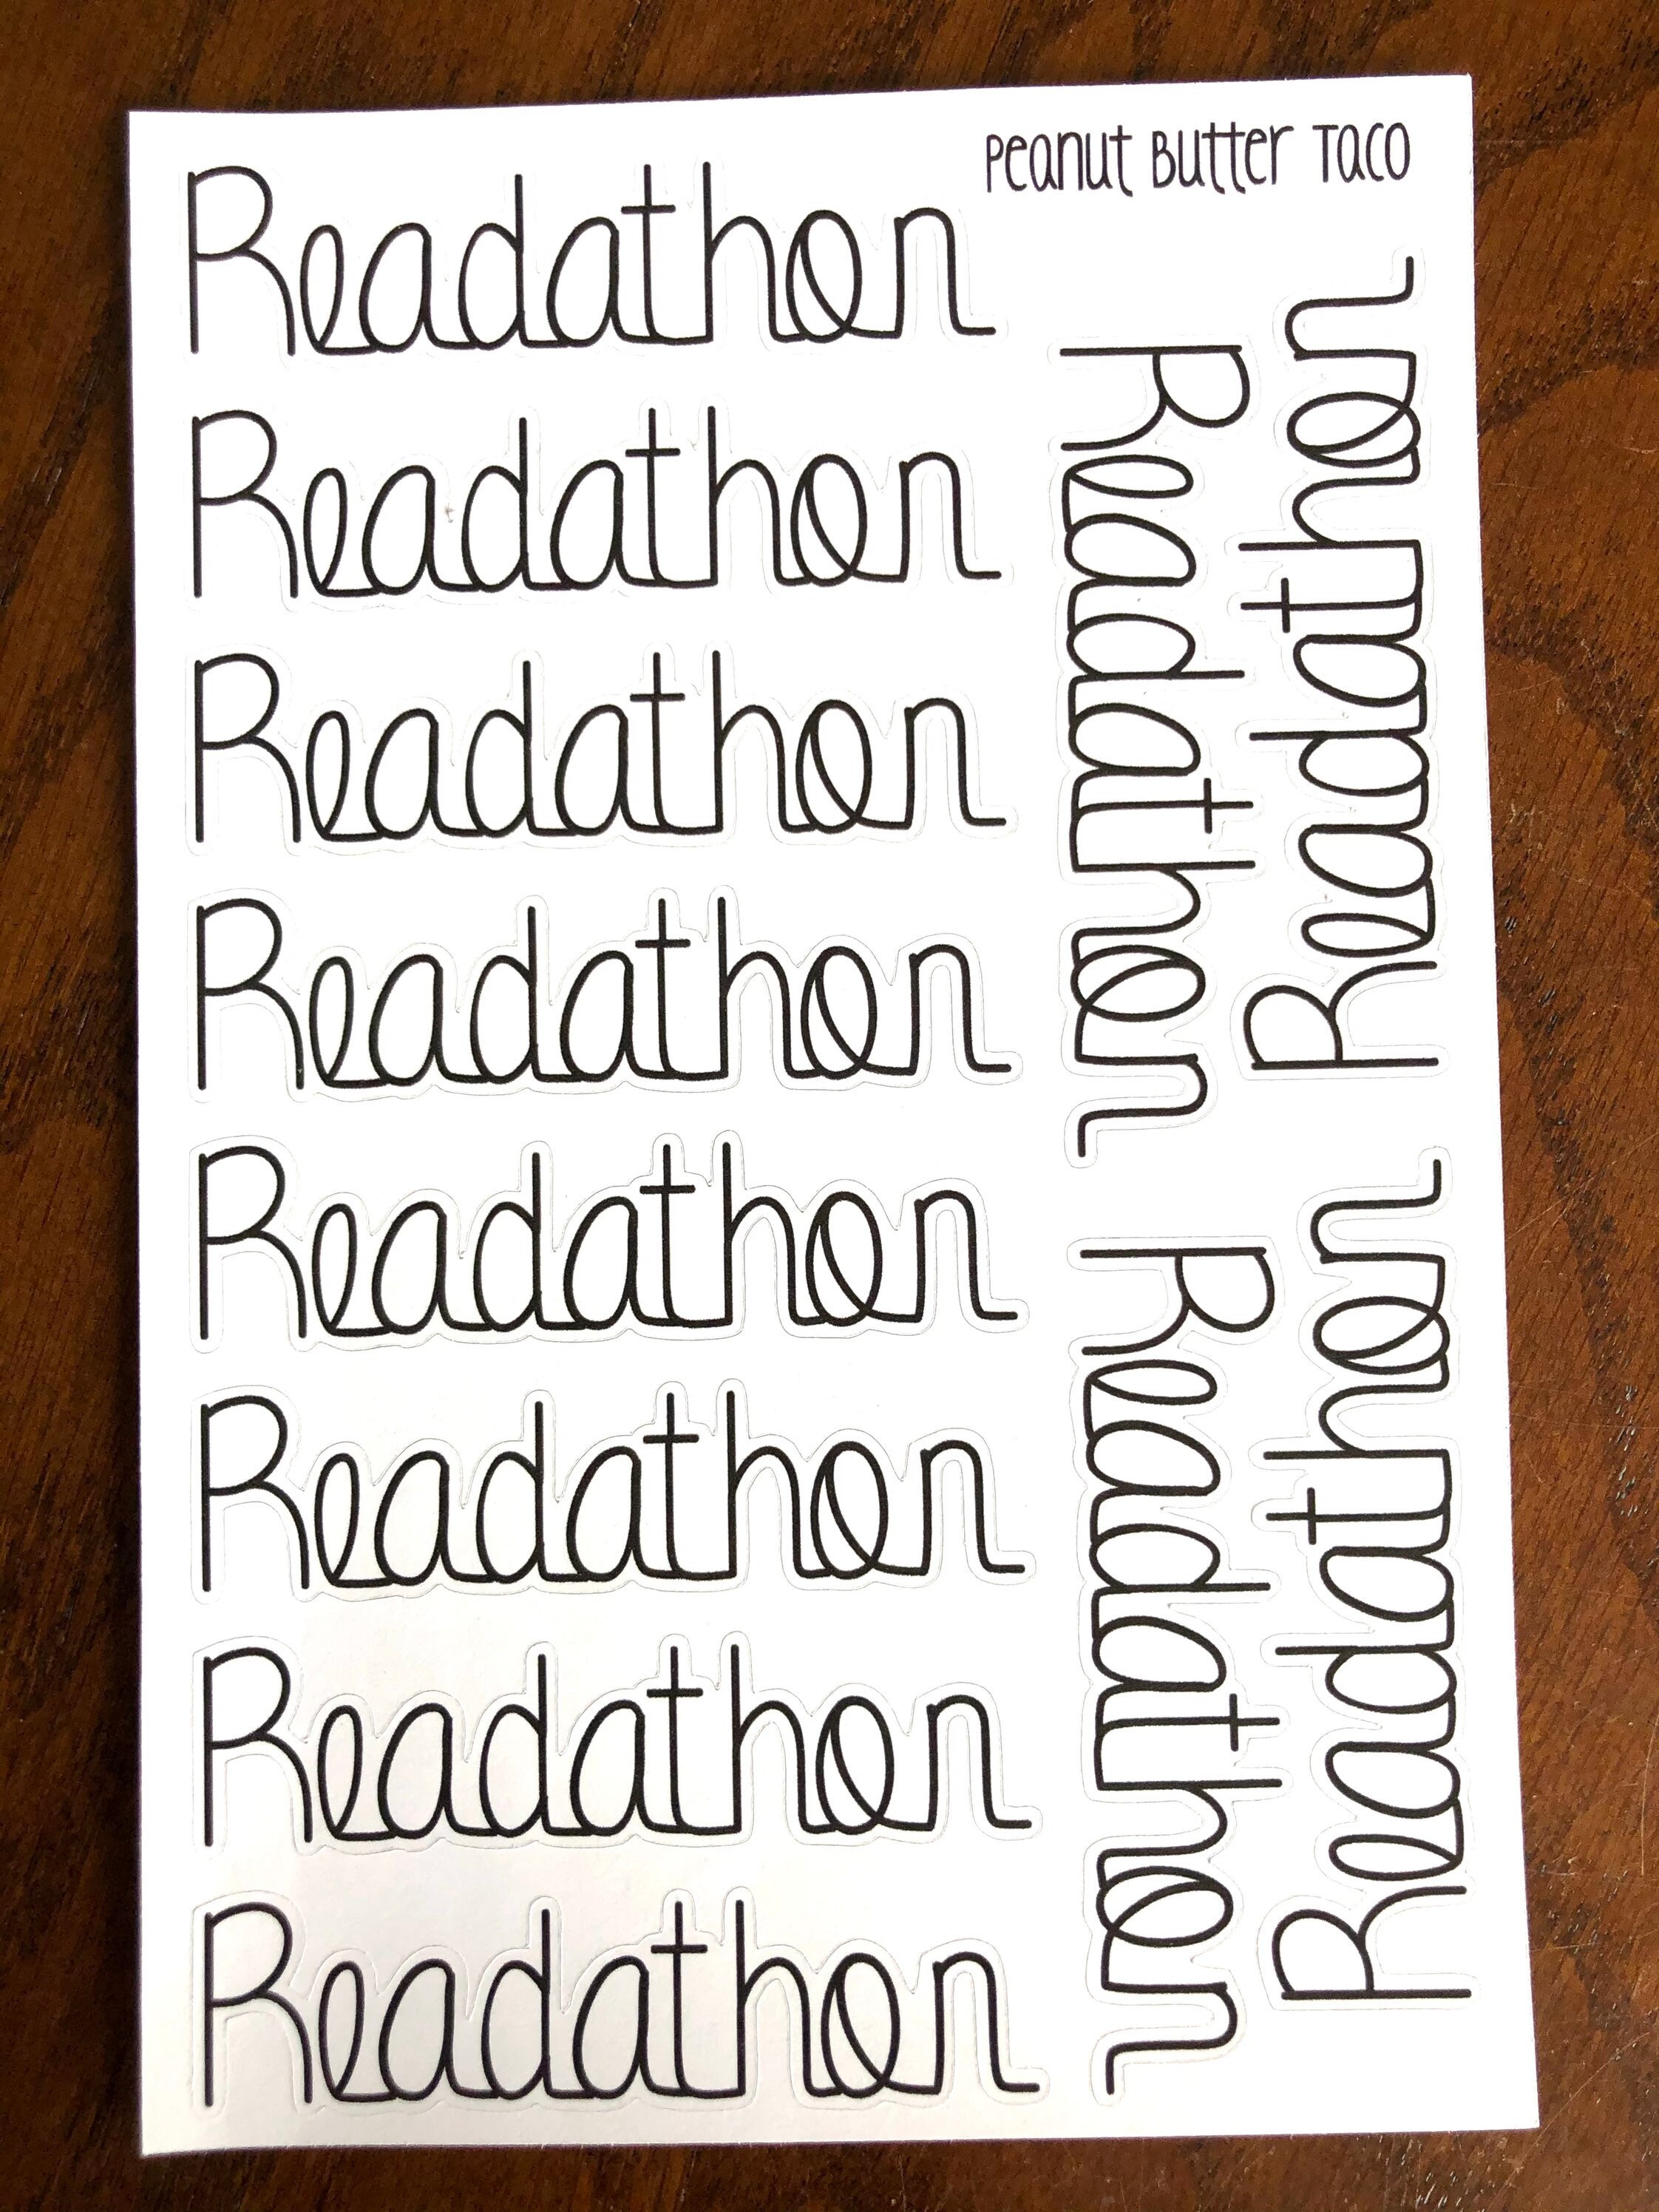 Peanut Butter Taco
Readathon
Readathon
Readathon
Readathon
Readathon
Readathon
Readathon
Readathon
Readathon
Readathon
Readathon
Readathon